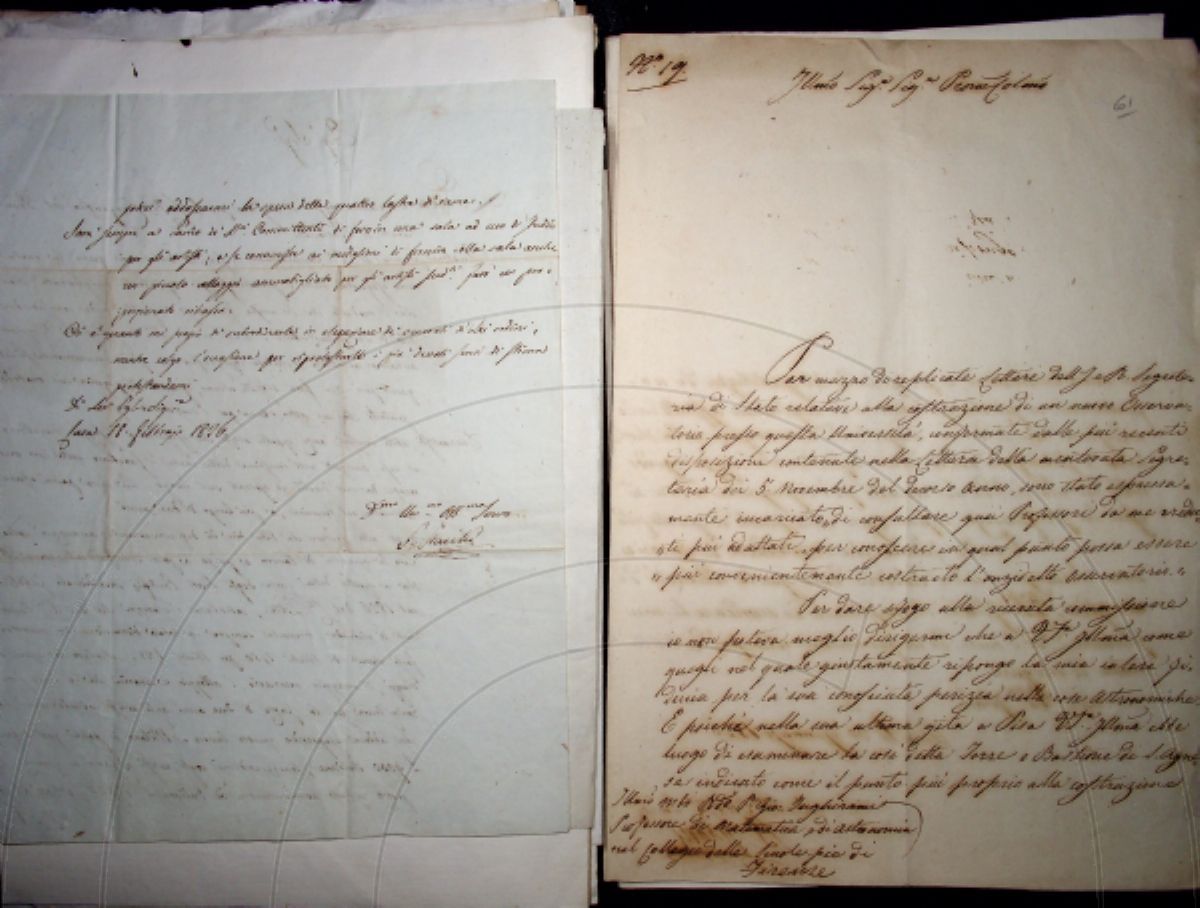 poter addossarmi la spesa delle quattro lastre di rame.
Sarà sempre a carico di Committenti di fornir una sala ad uso di studio
per gli artisti; e se convenisse ai medesimi di fornire alla sala anche
un piccolo alloggio ammobigliato per gli artisti sud.ti farò un pro-
porzionato ribasso.
Ciò è quanto mi pregio di in di ordini,
mentre colgo l'occasione per i più devoti sensi di stima
protestandomi
Di
Casa 11. Febbraio 1826
Servo
N.o 19.
Illmo Sig.r Sig.r Prone Colmo
61
Per mezzo di replicate Lettere dell'I. e R. Segrete-
ria di Stato relative alla costruzione di un nuovo Osserva-
torio presso questa Università, confermate dalle più recenti
disposizioni contenute nella Lettera della mentovata Segre-
taria dei 5 Novembre del decorso Anno, sono stato espressa-
mente incaricato, di consultare quei Professori da me credu
ti più adattati, per conoscere in qual punto possa essere
" più convenientemente costruito l'anzidetto Osservatorio. "
Per dare sfogo alla ricevuta commissione
io non poteva meglio dirigermi che a V.S. Illma come
quegli nel quale giustamente ripongo la mia intera fi-
ducia per la sua conosciuta perizia nelle cose Astronomiche
E poichè nella sua ultima gita a Pisa V.S. Illma ebbe
luogo di esaminare la così detta Torre o Bastione di S. Agne
se indicato come il punto più proprio alla costruzione
Illmo Rdo P. Gio. Inghirami
Professore di Matematica, e di Astronomia
nel Collegio delle Scuole pie di
Firenze